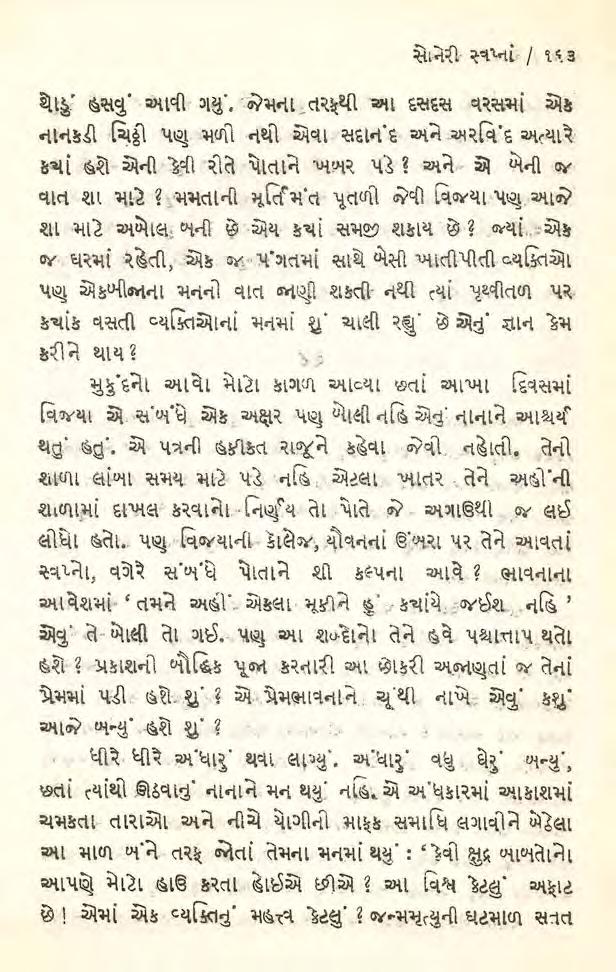 સોનેરી સ્વપ્નાં / ૧૬૩
થોડું હસવું આવી ગયું. જેમના તરફથી આ દસદસ વરસમાં એક
નાનકડી ચિઠ્ઠી પણ મળી નથી એવા સદાનંદ અને અરવિંદ અત્યારે
ક્યાં હશે એની કેવી રીતે પોતાને ખબર પડે ? અને એ બેની જ
વાત શા માટે ? મમતાની મૂર્તિમંત પૂતળી જેવી વિજયા પણ આજે
શા માટે અબોલ બની છે એય ક્યાં સમજી શકાય છે ? જ્યાં એક
જ ઘરમાં રહેતી, એક જ પંગતમાં સાથે બેસી ખાતીપીતી વ્યક્તિઓ
પણ એકબીજાના મનની વાત જાણી શકતી નથી ત્યાં પૃથ્વીતળ પર
ક્યાંક વસતી વ્યક્તિઓનાં મનમાં શું ચાલી રહ્યું છે એનું જ્ઞાન કેમ
કરીને થાય ?
મુકુંદનો આવો મોટો કાગળ આવ્યા છતાં આખા દિવસમાં
વિજયા એ સંબંધે એક અક્ષર પણ બોલી નહિ એનું નાનાને આશ્ચર્ય
થતું હતું. એ પત્રની હકીકત રાજૂને કહેવા જેવી નહોતી. તેની
શાળા લાંબા સમય માટે પડે નહિ એટલા ખાતર તેને અહીંની
શાળામાં દાખલ કરવાનો નિર્ણય તો પોતે જે અગાઉથી જ લઈ
લીધો હતો. પણ વિજયાની કૉલેજ, યૌવનનાં ઉંબરા પર તેને આવતાં
સ્વપ્નો, વગેરે સંબંધે પોતાને શી કલ્પના આવે ? ભાવનાના
આવેશમાં ‘ તમને અહીં એકલા મૂકીને હું ક્યાંયે જઈશ નહિ ’
એવું તે બોલી તો ગઈ. પણ આ શબ્દોનો તેને હવે પશ્ચાત્તાપ થતો
હશે ? પ્રકાશની બૌદ્ધિક પૂજા કરનારી આ છોકરી અજાણતાં જ તેનાં
પ્રેમમાં પડી હશે શું ? એ પ્રેમભાવનાને ચૂંથી નાખે એવું કશું
આજે બન્યું હશે શું ?
ધીરે ધીરે અંધારું થવા લાગ્યું. અંધારું વધુ ઘેરું બન્યું,
છતાં ત્યાંથી ઊઠવાનું નાનાને મન થયું નહિ. એ અંધકારમાં આકાશમાં
ચમકતા તારાઓ અને નીચે યોગીની માફક સમાધિ લગાવીને બેઠેલા
આ માળ બંને તરફ જોતાં તેમના મનમાં થયું : ‘ કેવી ક્ષુદ્ર બાબતોનો
આપણે મોટો હાઉ કરતા હોઈએ છીએ ? આ વિશ્વ કેટલું અફાટ
છે ! એમાં એક વ્યક્તિનું મહત્ત્વ કેટલું ? જન્મમૃત્યુની ઘટમાળ સતત